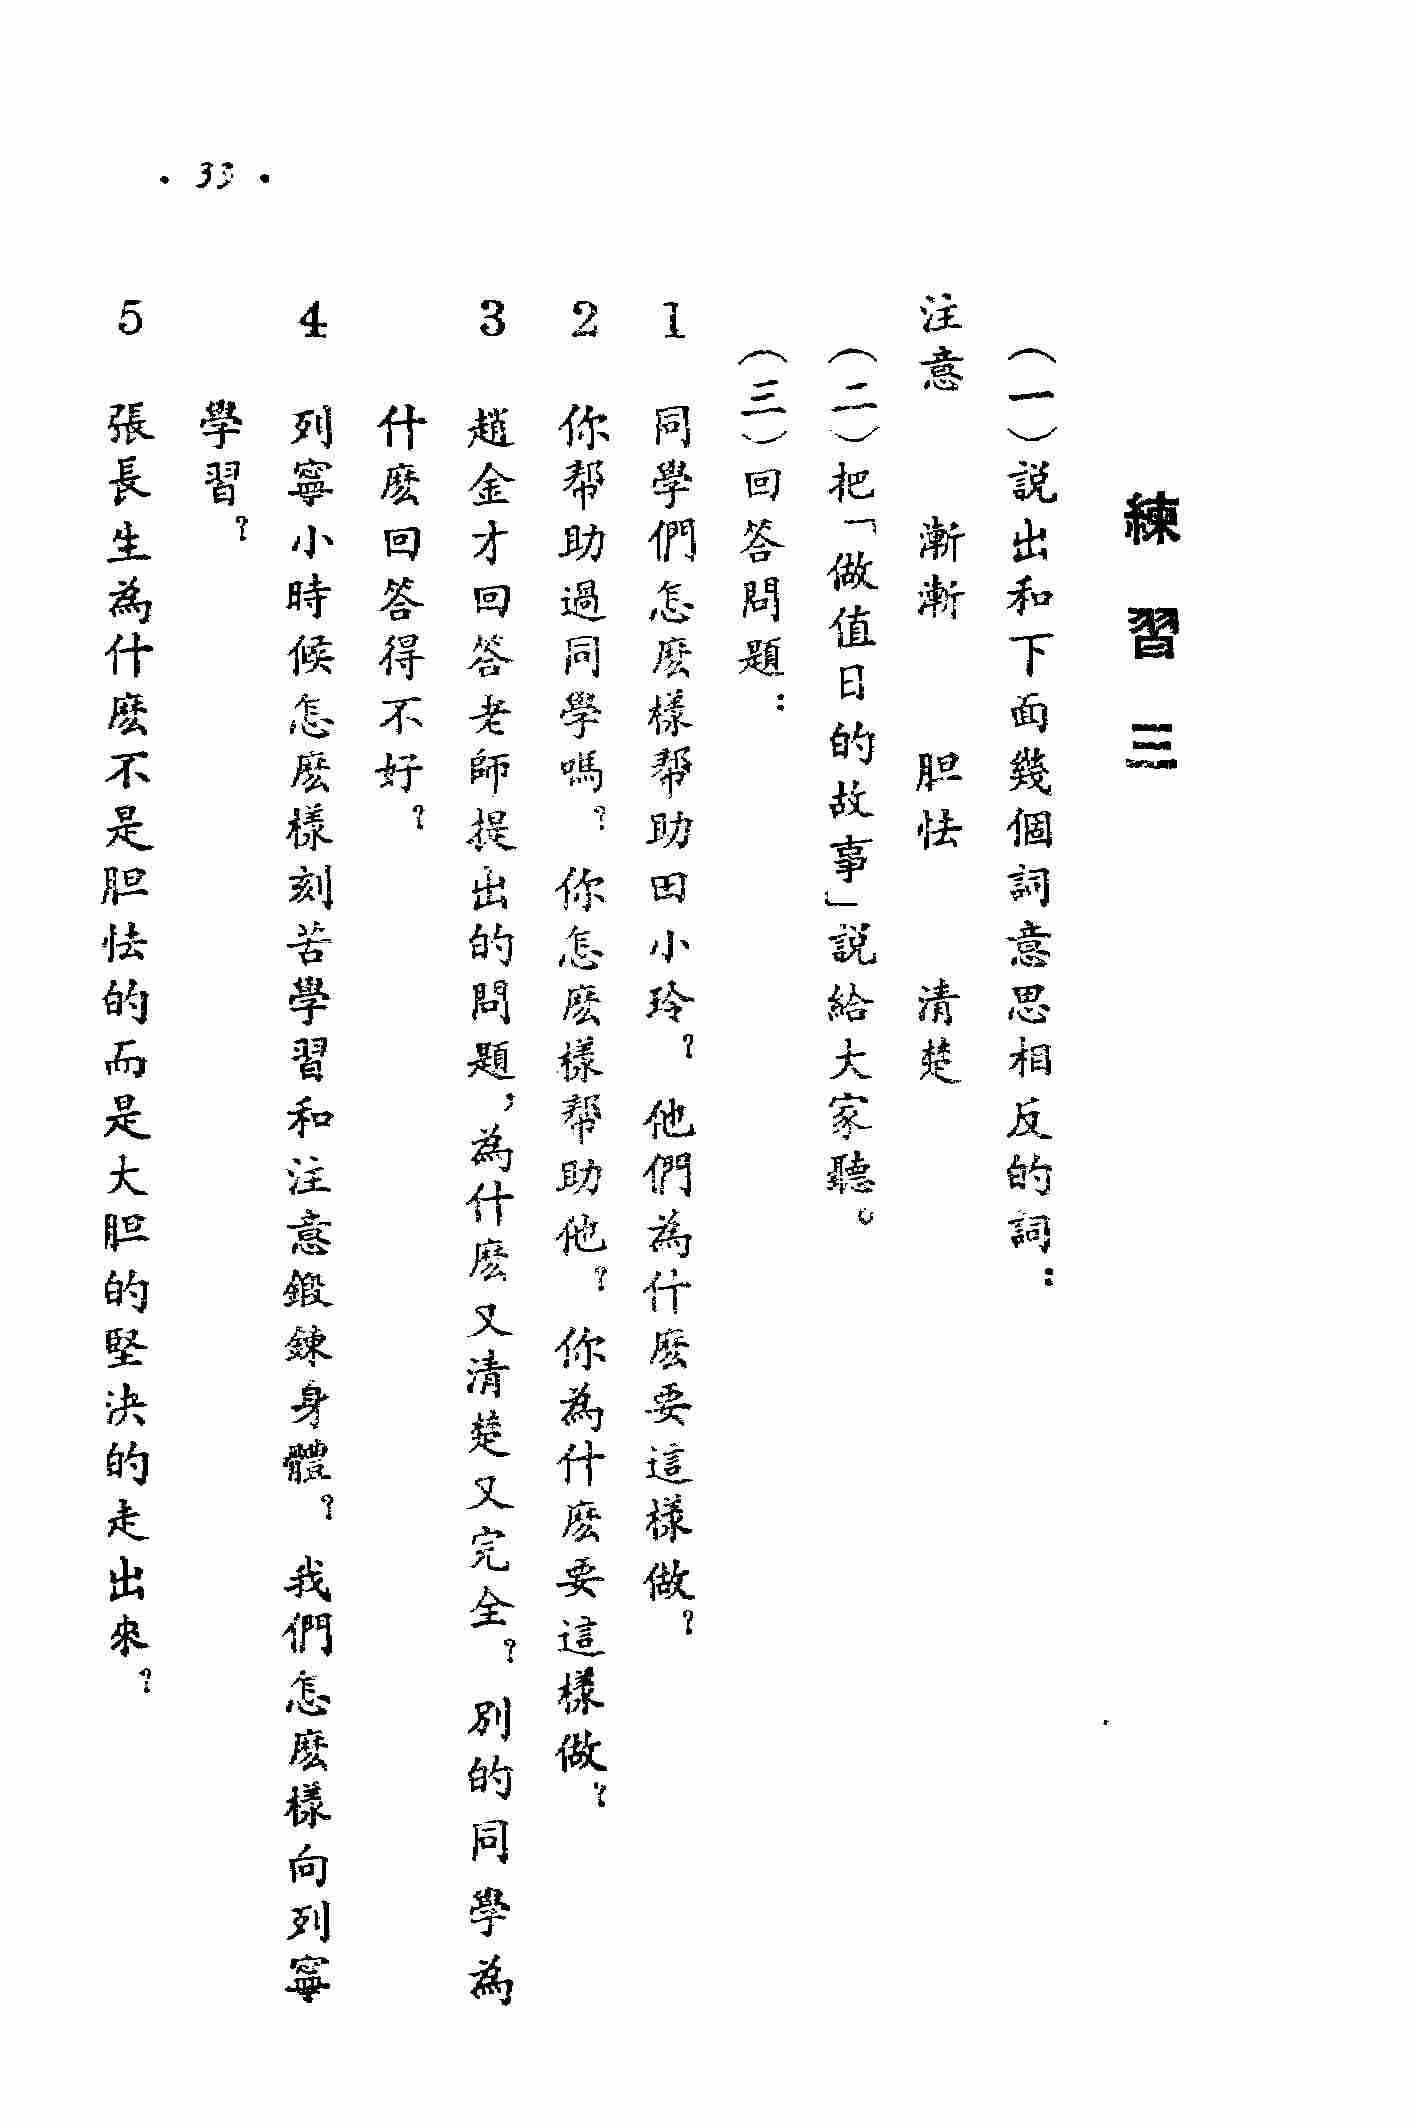 練習三
(一)説出和下面幾個詞意思相反的詞：
注意　漸漸　胆怯　清楚
(二)把「做值日的故事」説給大家聽。
(三)回答問題：
1　同學們怎麽樣帮助田小玲？他們為什麽要這樣做？
2　你帮助過同學嗎？你怎麽樣帮助他？你為什麽要這樣做？
3　趙金才回答老師提出的問題，為什麽又清楚又完全？別的同學為
什麽回答得不好？
4　列寧小時候怎麽樣刻苦學習和注意鍛鍊身體？我們怎麽樣向列寧
學習？
5　張長生為什麽不是胆怯的而是大胆的堅决的走出來？
·33·